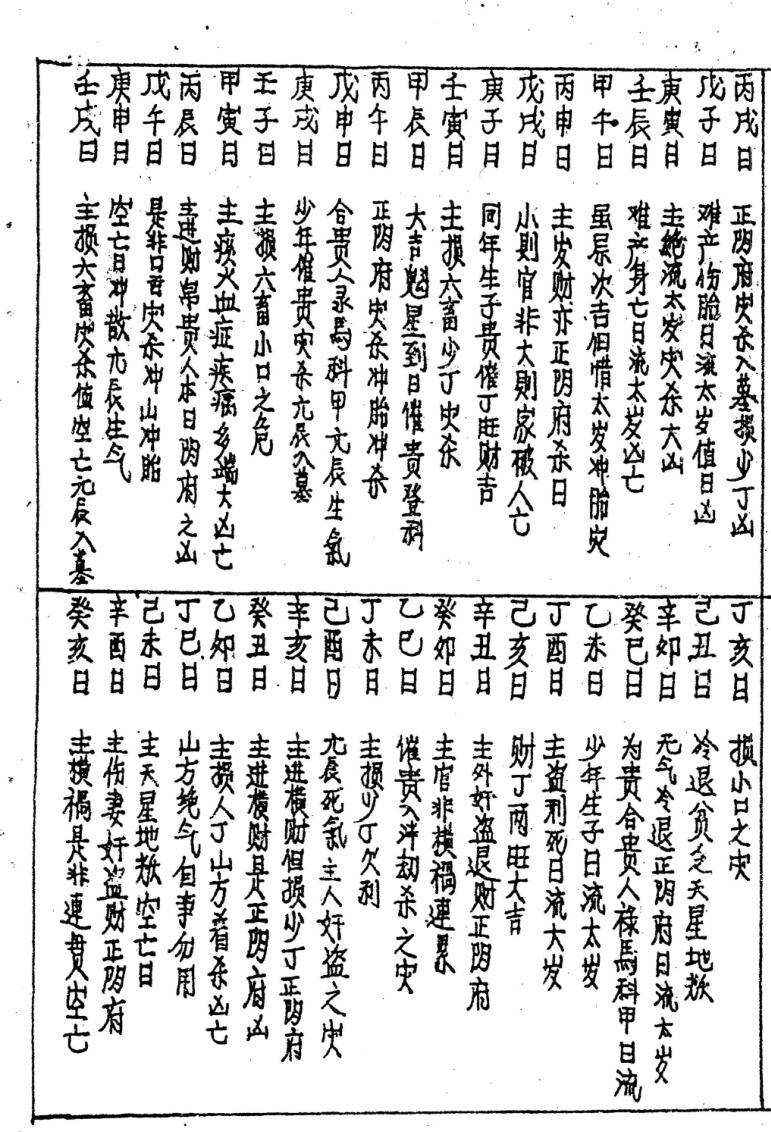 丙戌日 正阴府灾杀入墓损少丁凶
戊子日 难产伤胎日流太岁值日凶
庚寅日 主绝流太岁灾杀大凶
壬辰日 难产身亡日流太岁凶亡
甲午日 虽辰次吉但惜太岁冲胎灾
丙申日 主岁财亦正阴府杀日
戊戌日 小则官非大则家破人亡
庚子日 同年生子贵催丁旺财吉
壬寅日 主损六畜少丁灾杀
甲辰日 大吉魁星到日催贵登科
丙午日 正阴府灾杀冲胎冲杀
戊申日 合贵人录馬科甲元辰生氣
庚戌日 少年催贵灾杀元辰入墓
壬子日 主损六畜小口之危
甲寅日 主痰火血症疾病多端大凶亡
丙辰日 主进财帛贵人本日阴府之凶
戊午日 是非口舌灾杀冲山冲胎
庚申日 空亡日冲散元辰生气
壬戌日 主损六畜灾杀值空亡元辰入墓
丁亥日 损小口之灾
己丑日 冷退贫乏天星地煞
辛卯日 无气冷退正阴府日流太岁
癸巳日 为贵合贵人禄馬科甲日流
乙未日 少年生子日流太岁
丁酉日 主盗刑死日流太岁
己亥日 财丁两旺大吉
辛丑日 主外奸盗退财正阴府
癸卯日 主官非横禍連累
乙巳日 催贵入泮劫杀之灾
丁未日 主损少丁欠利
己酉日 元辰死氣主人奸盗之灾
辛亥日 主进横财但损少丁正阴府
癸丑日 主进横财是正阴府凶
乙卯日 主损人丁山方着杀凶亡
丁巳日 山方绝气百事勿用
己未日 主天星地煞空亡日
辛酉日 主伤妻奸盗财正阴府
癸亥日 主横禍是非連貫人空亡